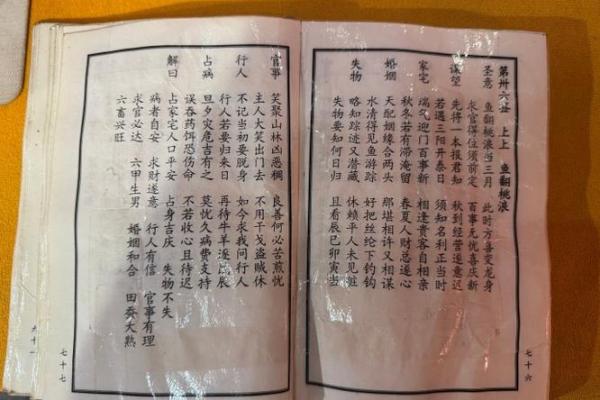 第卅六签 上上 鱼翻桃浪
圣意 鱼翻桃浪当三月 此时方喜变龙身
求官得位须前定 百事无忧喜庆新
谋望 先将一本报君知 秋到经营遂意迟
若遇三阳开泰日 须知名利正当时
家宅 瑞气迎门百事新 相逢贵客自相亲
秋冬若有滞淹留 春夏人财总遂心
婚姻 天配姻缘合两头 那堪相许又相谋
水清得见鱼游踪 好把丝纶下钓钩
失物 略知踪迹又潜藏 休赖平人未见赃
失物要知何日归 且看辰巳卯寅当
七十六
官事 笑聚山林凶恶稠 良善何必苦煎忧
主人大笑出门去 不用干戈盗贼休
行人 不记当初要脱身 如今求我问行人
行人若要归来日 再待牛羊辰
占病 旦夕灾危吉有之 莫忧久病费支持
误吞药饵恐伤命 不若收心且待迟
解曰 占家宅人口平安 占身吉庆 失物不失
病者自安 求财遂意 行人有信 官事有理
求官必达 六甲生男 婚姻和合 田蚕大熟
六畜兴旺
七十七